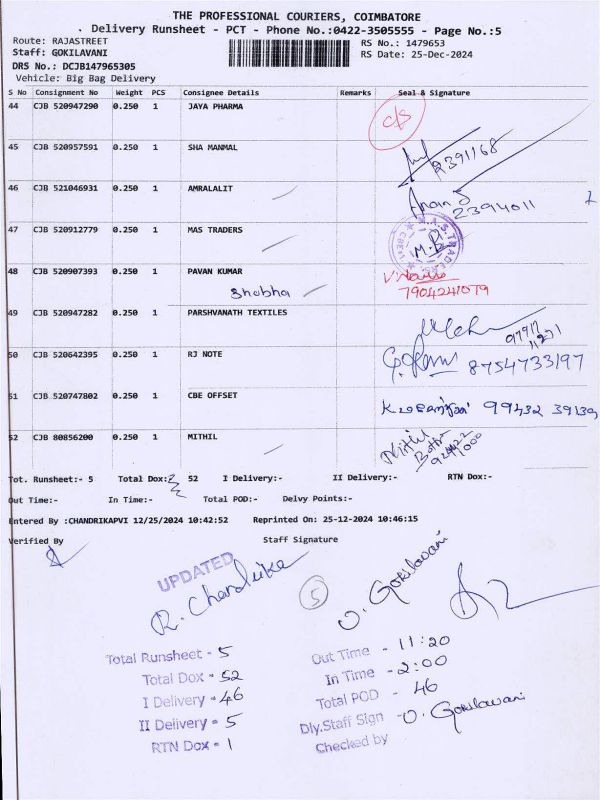 THE PROFESSIONAL COURIERS, COIMBATORE
. Delivery Runsheet - PCT - Phone No.:0422-3505555 - Page No.:5
Route: RAJASTREET
RS No.: 1479653
Staff: GOKILAVANI
RS Date: 25-Dec-2024
DRS No.: DCJB147965305
Vehicle: Big Bag Delivery
S No Consignment No Weight PCS Consignee Details Remarks Seal & Signature
44 CJB 520947290 0.250 1 JAYA PHARMA
c/s
45 CJB 520957591 0.250 1 SHA MANMAL
2391168
46 CJB 521046931 0.250 1 AMRALALIT
2394011
47 CJB 520912779 0.250 1 MAS TRADERS
48 CJB 520907393 0.250 1 PAVAN KUMAR
Shobha
7904241079
49 CJB 520947282 0.250 1 PARSHVANATH TEXTILES
50 CJB 520642395 0.250 1 RJ NOTE
8754733197
51 CJB 520747802 0.250 1 CBE OFFSET
99432 39139
52 CJB 80856200 0.250 1 MITHIL
Mithil
Tot. Runsheet:- 5 Total Dox:- 52 I Delivery:- II Delivery:- RTN Dox:-
Out Time:- In Time:- Total POD:- Delvy Points:-
Entered By :CHANDRIKAPVI 12/25/2024 10:42:52 Reprinted On: 25-12-2024 10:46:15
Verified By Staff Signature
UPDATED
R. Chandrika
5
O. Gokilavani
Total Runsheet - 5
Total Dox - 52
I Delivery - 46
II Delivery - 5
RTN Dox - 1
Out Time - 11:20
In Time - 2:00
Total POD - 46
Dly.Staff Sign - O. Gokilavani
Checked by